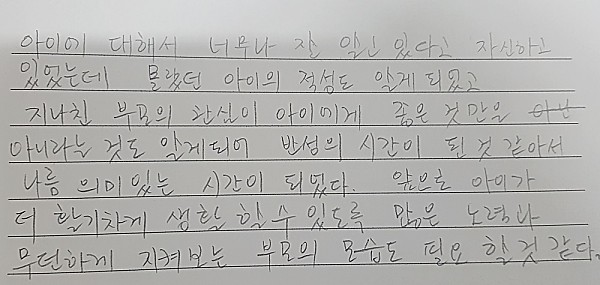 아이에 대해서 너무나 잘 알고 있다고 자신하고
있었는데 몰랐던 아이의 적성도 알게되었고
지나친 부모의 관심이 아이에게 좋은 것만을 아닌
아니라는 것도 알게되어 반성의 시간이 된 것 같아서
나름 의미있는 시간이 되었다. 앞으로 아이가
더 활기차게 생활 할 수 있도록 많은 노력과
무던하게 지켜보는 부모의 모습도 필요 할 것 같다.